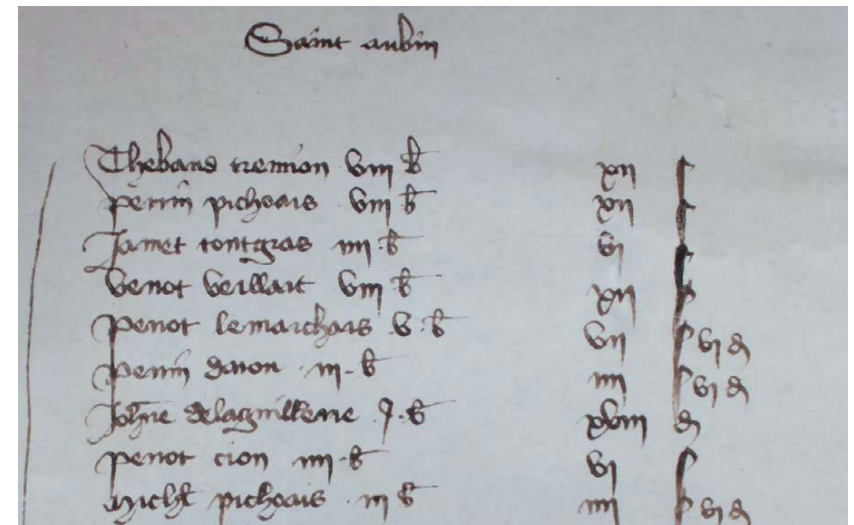 Saint aubin
Thebaud viii b xii s
perrin pichoais viii b xii s
Jamet tontgras iiii b vi s
venot veillart viii b xii s
penot lemarchais v b vii s vi d
perrin daron iii b iiii s vi d
Joh̅ne delaguillerie j b xviii d
penot cion iiii b vi s
Mich̅l pichoais iii b iiii s vi d